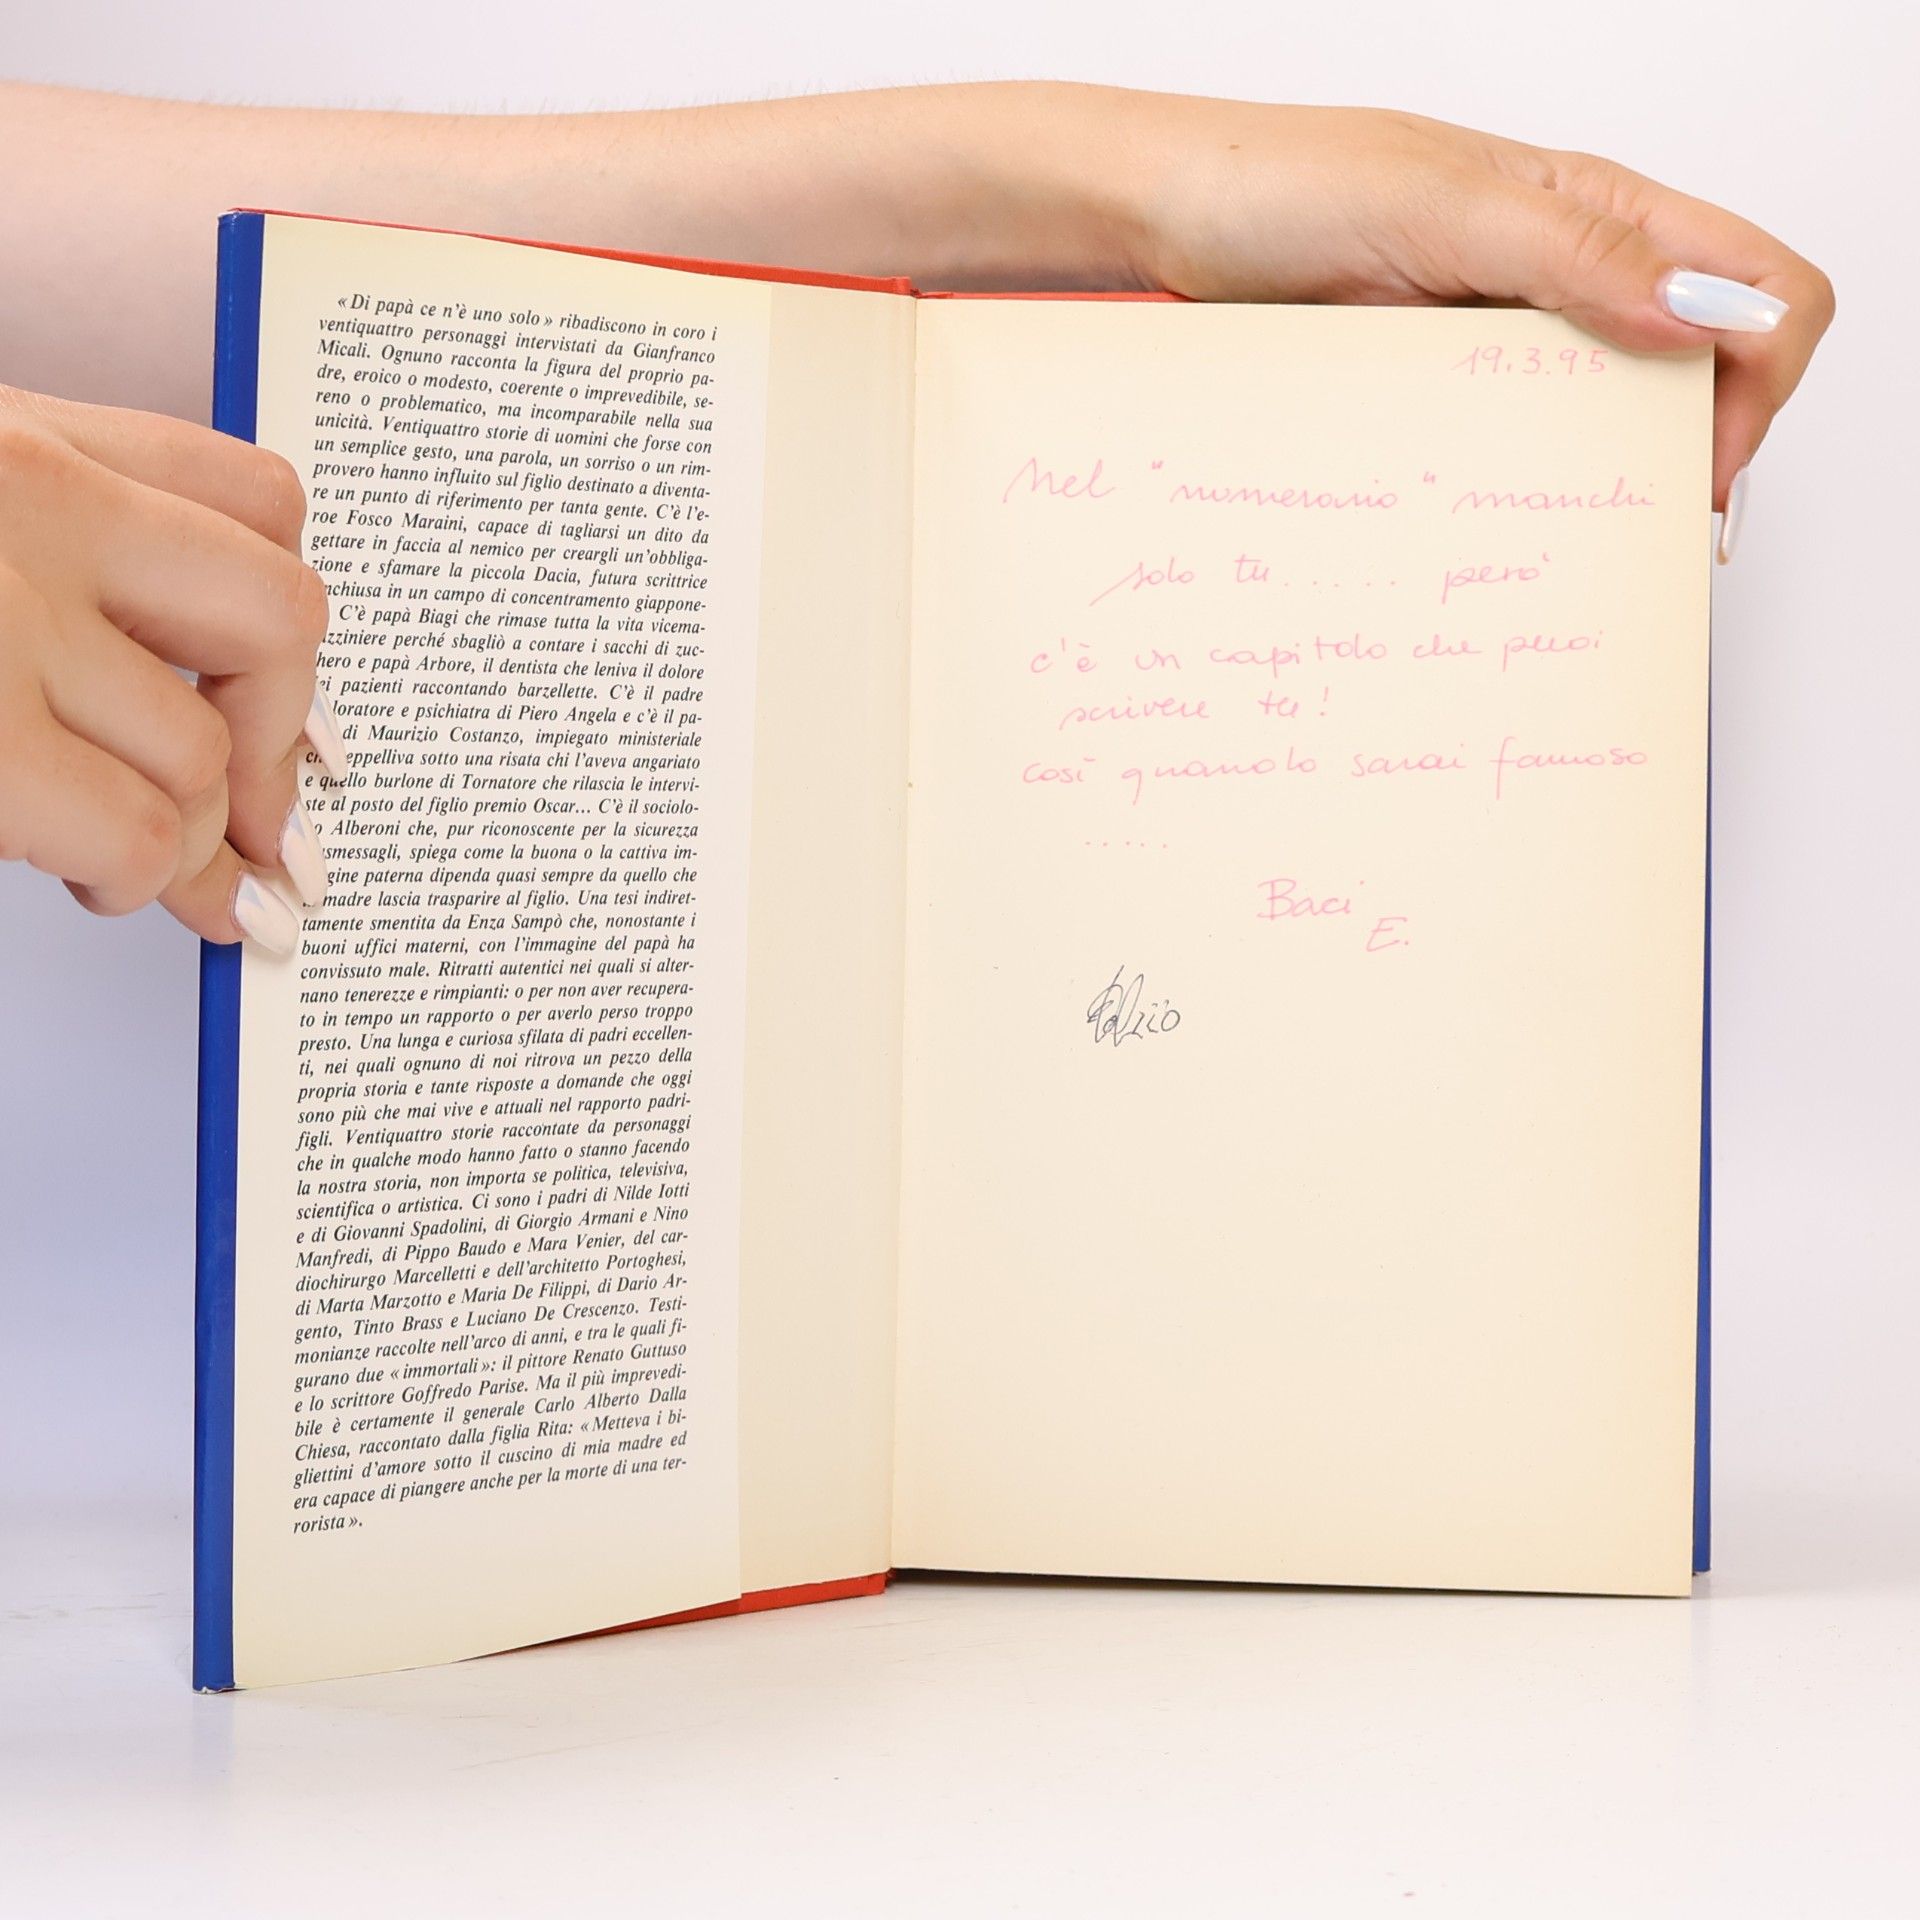 «Di papà ce n'è uno solo» ribadiscono in coro i
ventiquattro personaggi intervistati da Gianfranco
Micali. Ognuno racconta la figura del proprio pa-
dre, eroico o modesto, coerente o imprevedibile, se-
reno o problematico, ma incomparabile nella sua
unicità. Ventiquattro storie di uomini che forse con
un semplice gesto, una parola, un sorriso o un rim-
provero hanno influito sul figlio destinato a diventa-
re un punto di riferimento per tanta gente. C'è l'e-
roe Fosco Maraini, capace di tagliarsi un dito da
gettare in faccia al nemico per creargli un'obbliga-
zione e sfamare la piccola Dacia, futura scrittrice
nchiusa in un campo di concentramento giappone-
C'è papà Biagi che rimase tutta la vita vicema-
zziniere perché sbagliò a contare i sacchi di zuc-
hero e papà Arbore, il dentista che leniva il dolore
ei pazienti raccontando barzellette. C'è il padre
loratore e psichiatra di Piero Angela e c'è il pa-
di Maurizio Costanzo, impiegato ministeriale
eppelliva sotto una risata chi l'aveva angariato
e quello burlone di Tornatore che rilascia le intervi-
ste al posto del figlio premio Oscar... C'è il sociolo-
o Alberoni che, pur riconoscente per la sicurezza
smessagli, spiega come la buona o la cattiva im-
gine paterna dipenda quasi sempre da quello che
madre lascia trasparire al figlio. Una tesi indiret-
tamente smentita da Enza Sampò che, nonostante i
buoni uffici materni, con l'immagine del papà ha
convissuto male. Ritratti autentici nei quali si alter-
nano tenerezze e rimpianti: o per non aver recupera-
to in tempo un rapporto o per averlo perso troppo
presto. Una lunga e curiosa sfilata di padri eccellen-
ti, nei quali ognuno di noi ritrova un pezzo della
propria storia e tante risposte a domande che oggi
sono più che mai vive e attuali nel rapporto padri-
figli. Ventiquattro storie raccontate da personaggi
che in qualche modo hanno fatto o stanno facendo
la nostra storia, non importa se politica, televisiva,
scientifica o artistica. Ci sono i padri di Nilde Iotti
e di Giovanni Spadolini, di Giorgio Armani e Nino
Manfredi, di Pippo Baudo e Mara Venier, del car-
diochirurgo Marcelletti e dell'architetto Portoghesi,
di Marta Marzotto e Maria De Filippi, di Dario Ar-
gento, Tinto Brass e Luciano De Crescenzo. Testi-
monianze raccolte nell'arco di anni, e tra le quali fi-
gurano due «immortali»: il pittore Renato Guttuso
e lo scrittore Goffredo Parise. Ma il più imprevedi-
bile è certamente il generale Carlo Alberto Dalla
Chiesa, raccontato dalla figlia Rita: «Metteva i bi-
gliettini d'amore sotto il cuscino di mia madre ed
era capace di piangere anche per la morte di una ter-
rorista».
19.3.95
Nel "nomerario" manchi
solo tu..... però
c'è un capitolo che puoi
scrivere tu!
così quando sarai famoso
.....
Baci
E.